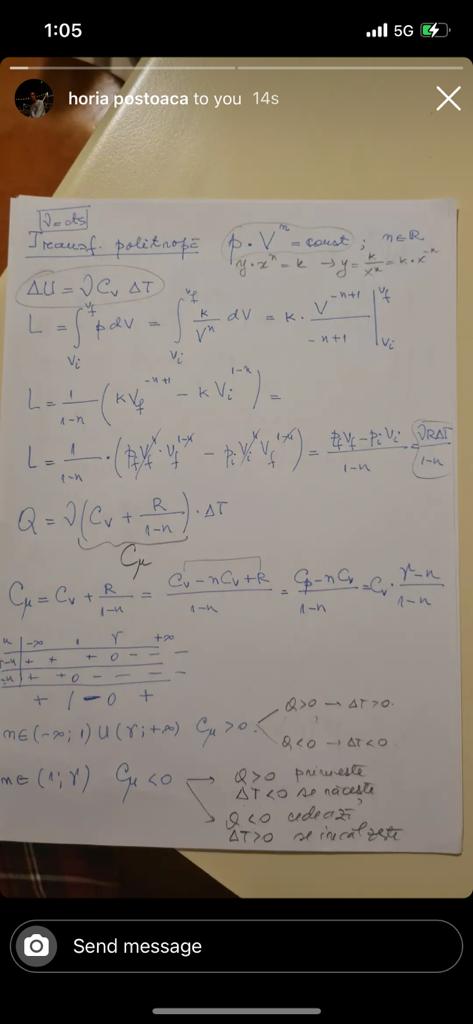 1:05
5G
horia postoaca to you 14s
ν=cts
Transf. politropă p·Vⁿ = const ; n∈R
y·xⁿ = k → y = k/xⁿ = k·x⁻ⁿ
ΔU = ν Cv ΔT
L = ∫_{Vi}^{Vf} p dV = ∫_{Vi}^{Vf} k/Vⁿ dV = k · V^{-n+1}/(-n+1) |_{Vi}^{Vf}
L = 1/(1-n) (kVf^{-n+1} - kVi^{1-n}) =
L = 1/(1-n) · (pf Vfⁿ · Vf^{1-n} - pi Viⁿ Vi^{1-n}) = (pf Vf - pi Vi)/(1-n) = νRΔT/(1-n)
Q = ν(Cv + R/(1-n)) · ΔT
Cμ
Cμ = Cv + R/(1-n) = (Cv - nCv + R)/(1-n) = (Cp - nCv)/(1-n) = Cv · (γ-n)/(1-n)
n | -∞ 1 γ +∞
γ-n | + + + 0 - - -
1-n | + + 0 - - - -
+ | - 0 +
n∈(-∞; 1) U (γ; +∞) Cμ > 0
Q>0 → ΔT>0
Q<0 → ΔT<0
n∈ (1; γ) Cμ < 0 → Q>0 primește
ΔT<0 se răcește
→ Q<0 cedează
ΔT>0 se încălzește
Send message